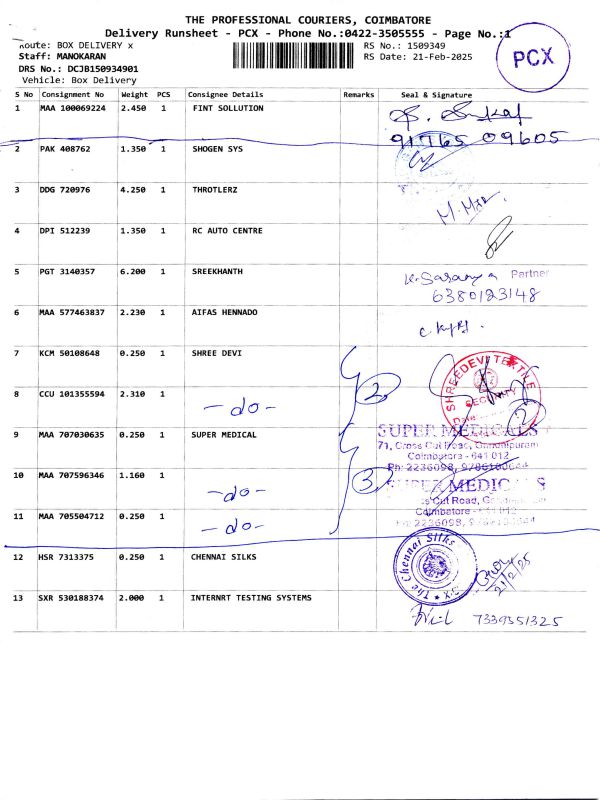 THE PROFESSIONAL COURIERS, COIMBATORE
Delivery Runsheet - PCX - Phone No.:0422-3505555 - Page No.:1
Route: BOX DELIVERY x
RS No.: 1509349
PCX
Staff: MANOKARAN
RS Date: 21-Feb-2025
DRS No.: DCJB150934901
Vehicle: Box Delivery
S No Consignment No Weight PCS Consignee Details Remarks Seal & Signature
1 MAA 100069224 2.450 1 FINT SOLLUTION
91765 09605
2 PAK 408762 1.350 1 SHOGEN SYS
3 DDG 720976 4.250 1 THROTLERZ
4 DPI 512239 1.350 1 RC AUTO CENTRE
5 PGT 3140357 6.200 1 SREEKHANTH
K. Saranya Partner
6380123148
6 MAA 577463837 2.230 1 AIFAS HENNADO
7 KCM 50108648 0.250 1 SHREE DEVI
SHREEDEVI TEXTILE
SECURITY
Date
8 CCU 101355594 2.310 1 -do- 2
9 MAA 707030635 0.250 1 SUPER MEDICAL
SUPER MEDICALS
71, Cross Cut Road,
Coimbatore - 641 012
Ph: 2236098,
10 MAA 707596346 1.160 1 -do- 3
SUPER MEDIC S
Cut Road,
Coimbatore - 641 012
2236098,
11 MAA 705504712 0.250 1 -do-
12 HSR 7313375 0.250 1 CHENNAI SILKS
The Chennai Silks
21/2/25
13 SXR 530188374 2.000 1 INTERNRT TESTING SYSTEMS
7339551325